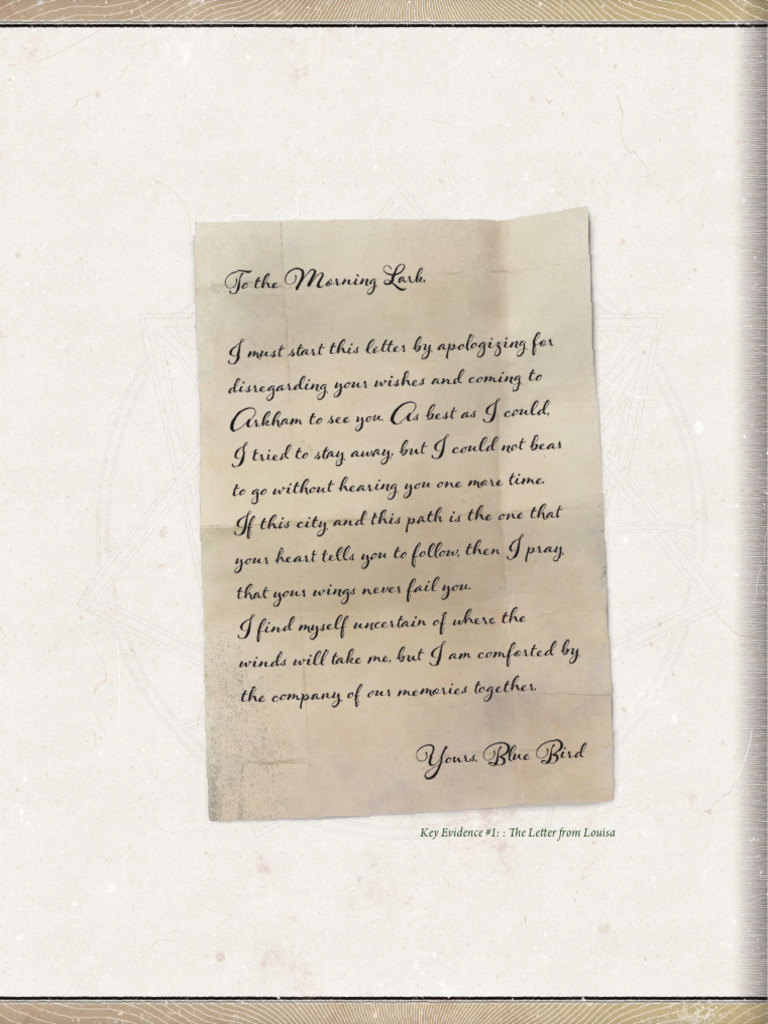 To the Morning Lark,
I must start this letter by apologizing for
disregarding your wishes and coming to
Arkham to see you. As best as I could,
I tried to stay away, but I could not bear
to go without hearing you one more time.
If this city and this path is the one that
your heart tells you to follow, then I pray
that your wings never fail you.
I find myself uncertain of where the
winds will take me, but I am comforted by
the company of our memories together.
Yours, Blue Bird
Key Evidence #1: : The Letter from Louisa